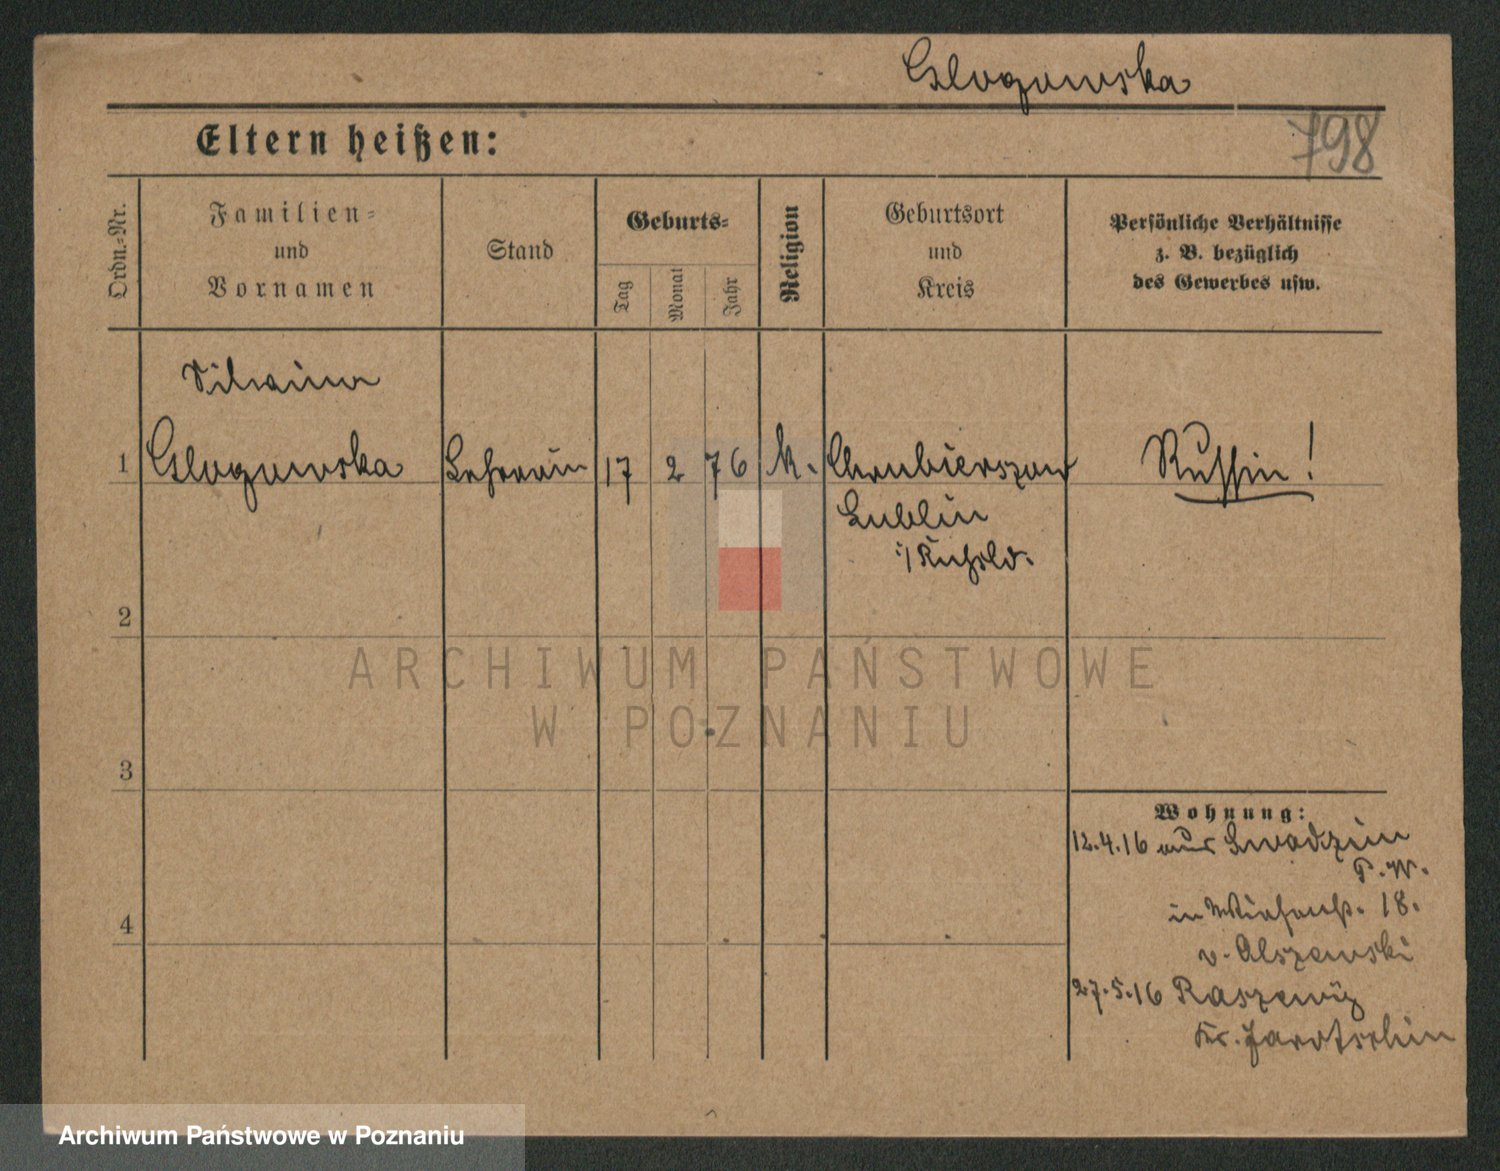 Glogowska
798
Eltern heißen:
Ordn.-Nr.
Familien-
und
Vornamen
Stand
Geburts-
Tag
Monat
Jahr
Religion
Geburtsort
und
Kreis
Persönliche Verhältnisse
z. B. bezüglich
des Gewerbes usw.
1
Glogowska
Lehrerin
17
2
76
k.
Lublin
i/Rußld.
Russin!
2
3
4
Wohnung:
12.4.16 aus
P.W.
in 18.
v. Olszewski
27.5.16 Raszewy
Kr. Jarotschin
ARCHIWUM PAŃSTWOWE
W POZNANIU
Archiwum Państwowe w Poznaniu